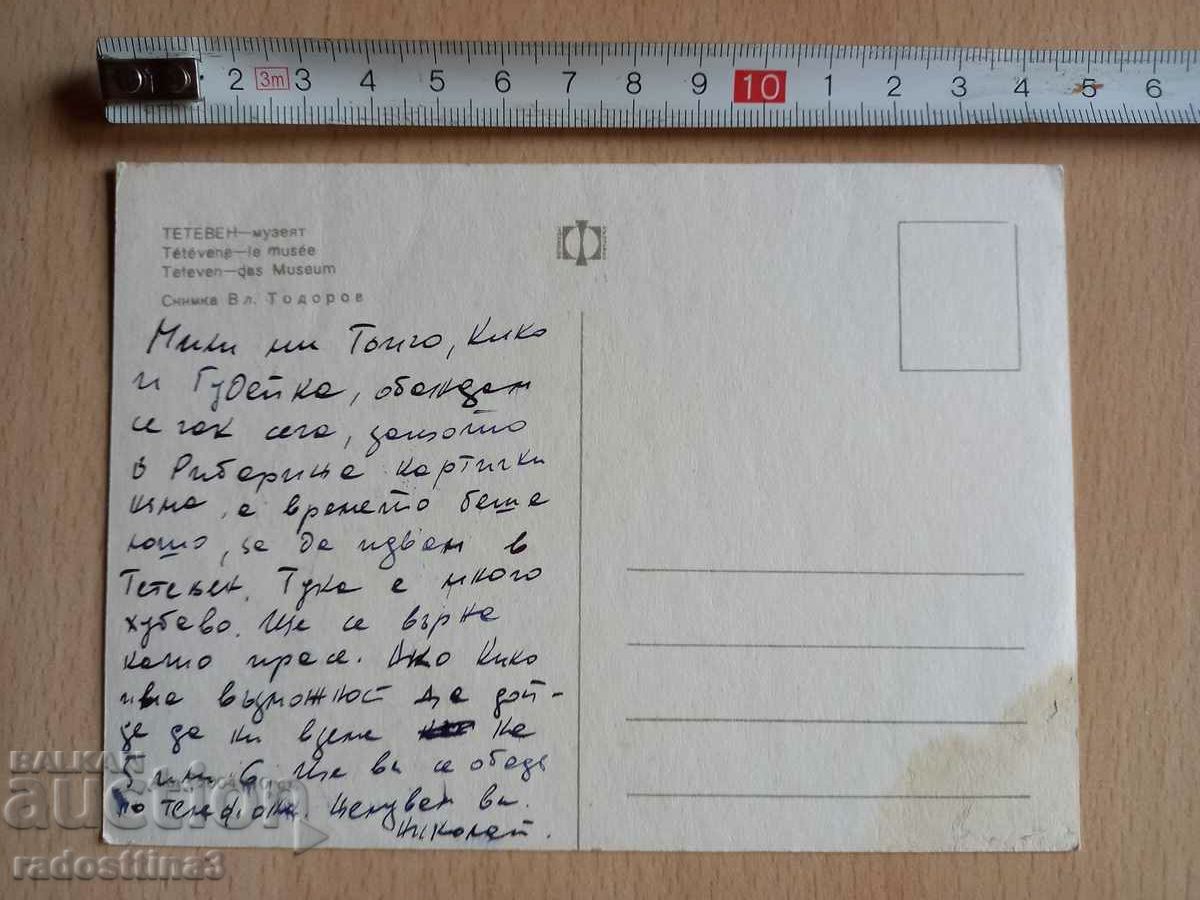 2 3m 3 4 5 6 7 8 9 10 1 2 3 4 5 6
ТЕТЕВЕН—музеят
Tétévene—le musée
Teteven—das Museum
Снимка Вл. Тодоров
Мили ми Тонго, Кико
и Гудейка, обаждам
се чак сега, защото
в Рибарица картички
няма, а времето беше
лошо, за да идвам в
Тетевен. Тука е много
хубаво. Ще се върна
като прасе. Ако Кико
има възможност да дой-
де да ни вземе на
5 или 6. Ще ви се обадя
по телефона. Целувам ви.
Николай.
BALKAN
auction
radosttina3